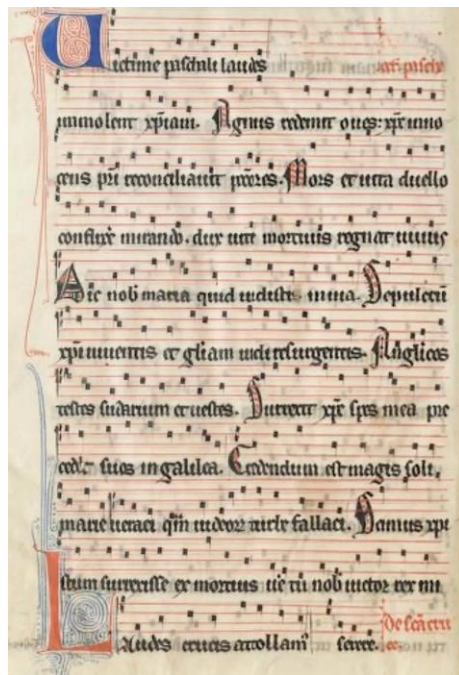 Victime paschali laudes
immolent xpiani. Agnus redemit oues: xpc inno
cens pri reconciliauit pctores. Mors et uita duello
conflixe mirando. dux uite mortuus regnat uiuus
Dic nob maria quid uidisti in uia. Sepulcru
xpi uiuentis et gliam uidi resurgentis. Anglicos
testes sudarium et uestes. Surrexit xpc spes mea pre
ced; suos in galilea. Credendum est magis soli
marie ueraci qm iudeor turbe fallaci. Scimus xpc
istum surrexisse ex mortuis ue tu nob uictor rex mi
De sca cru
ce.
Laudes crucis attollam